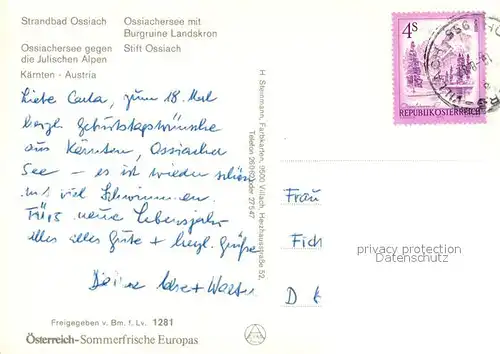 Strandbad Ossiach
Ossiachersee mit
Burgruine Landskron
Ossiachersee gegen
die Julischen Alpen
Stift Ossiach
Kärnten - Austria
Liebe Carla, zum 18. Mal
herzl. Geburtstagswünsche
aus Kärnten, Ossiacher
See – es ist wieder schön
mit viel Schwimmen.
Fürs neue Lebensjahr
alles alles Gute + herzl. Grüße
Deine + Walter
Freigegeben v. Bm. f. Lv. 1281
Österreich-Sommerfrische Europas
H. Steinmann, Farbkarten, 9500 Villach, Herzhausstraße 52,
Telefon oder 27547
4S
REPUBLIK ÖSTERREICH
VILLACH
Frau
Fich
D
privacy protection